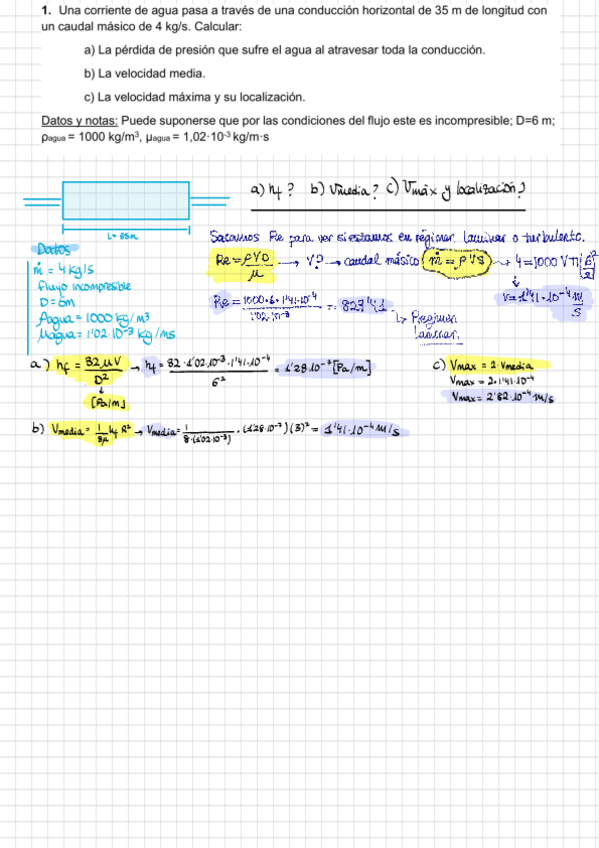 1. Una corriente de agua pasa a través de una conducción horizontal de 35 m de longitud con
un caudal másico de 4 kg/s. Calcular:
a) La pérdida de presión que sufre el agua al atravesar toda la conducción.
b) La velocidad media.
c) La velocidad máxima y su localización.
Datos y notas: Puede suponerse que por las condiciones del flujo este es incompresible; D=6 m;
ρagua = 1000 kg/m³, μagua = 1,02·10⁻³ kg/m·s
a) hf? b) Vmedia? c) Vmáx y localización?
L= 35m
Sacamos Re para ver si estamos en régimen laminar o turbulento.
Datos
ṁ = 4 kg/s
flujo incompresible
D = 6m
ρagua = 1000 kg/m³
μagua = 1'02·10⁻³ kg/ms
Re = ρVD/μ → V? → caudal másico ṁ = ρVS → 4=1000 V π (6²/4)
V = 1'41·10⁻⁴ m/s
Re = 1000·6·1'41·10⁻⁴ / 1'02·10⁻³ = 827'41 ↳ Régimen
laminar.
a) hf = 32μV/D² → hf = 32·1'02·10⁻³·1'41·10⁻⁴ / 6² = 1'28·10⁻⁷ [Pa/m]
[Pa/m]
c) Vmax = 2·Vmedia
Vmax = 2·1'41·10⁻⁴
Vmax = 2'82·10⁻⁴ m/s
b) Vmedia = 1/8μ hf R² → Vmedia = 1/8·(1'02·10⁻³) · (1'28·10⁻⁷)(3)² = 1'41·10⁻⁴ m/s